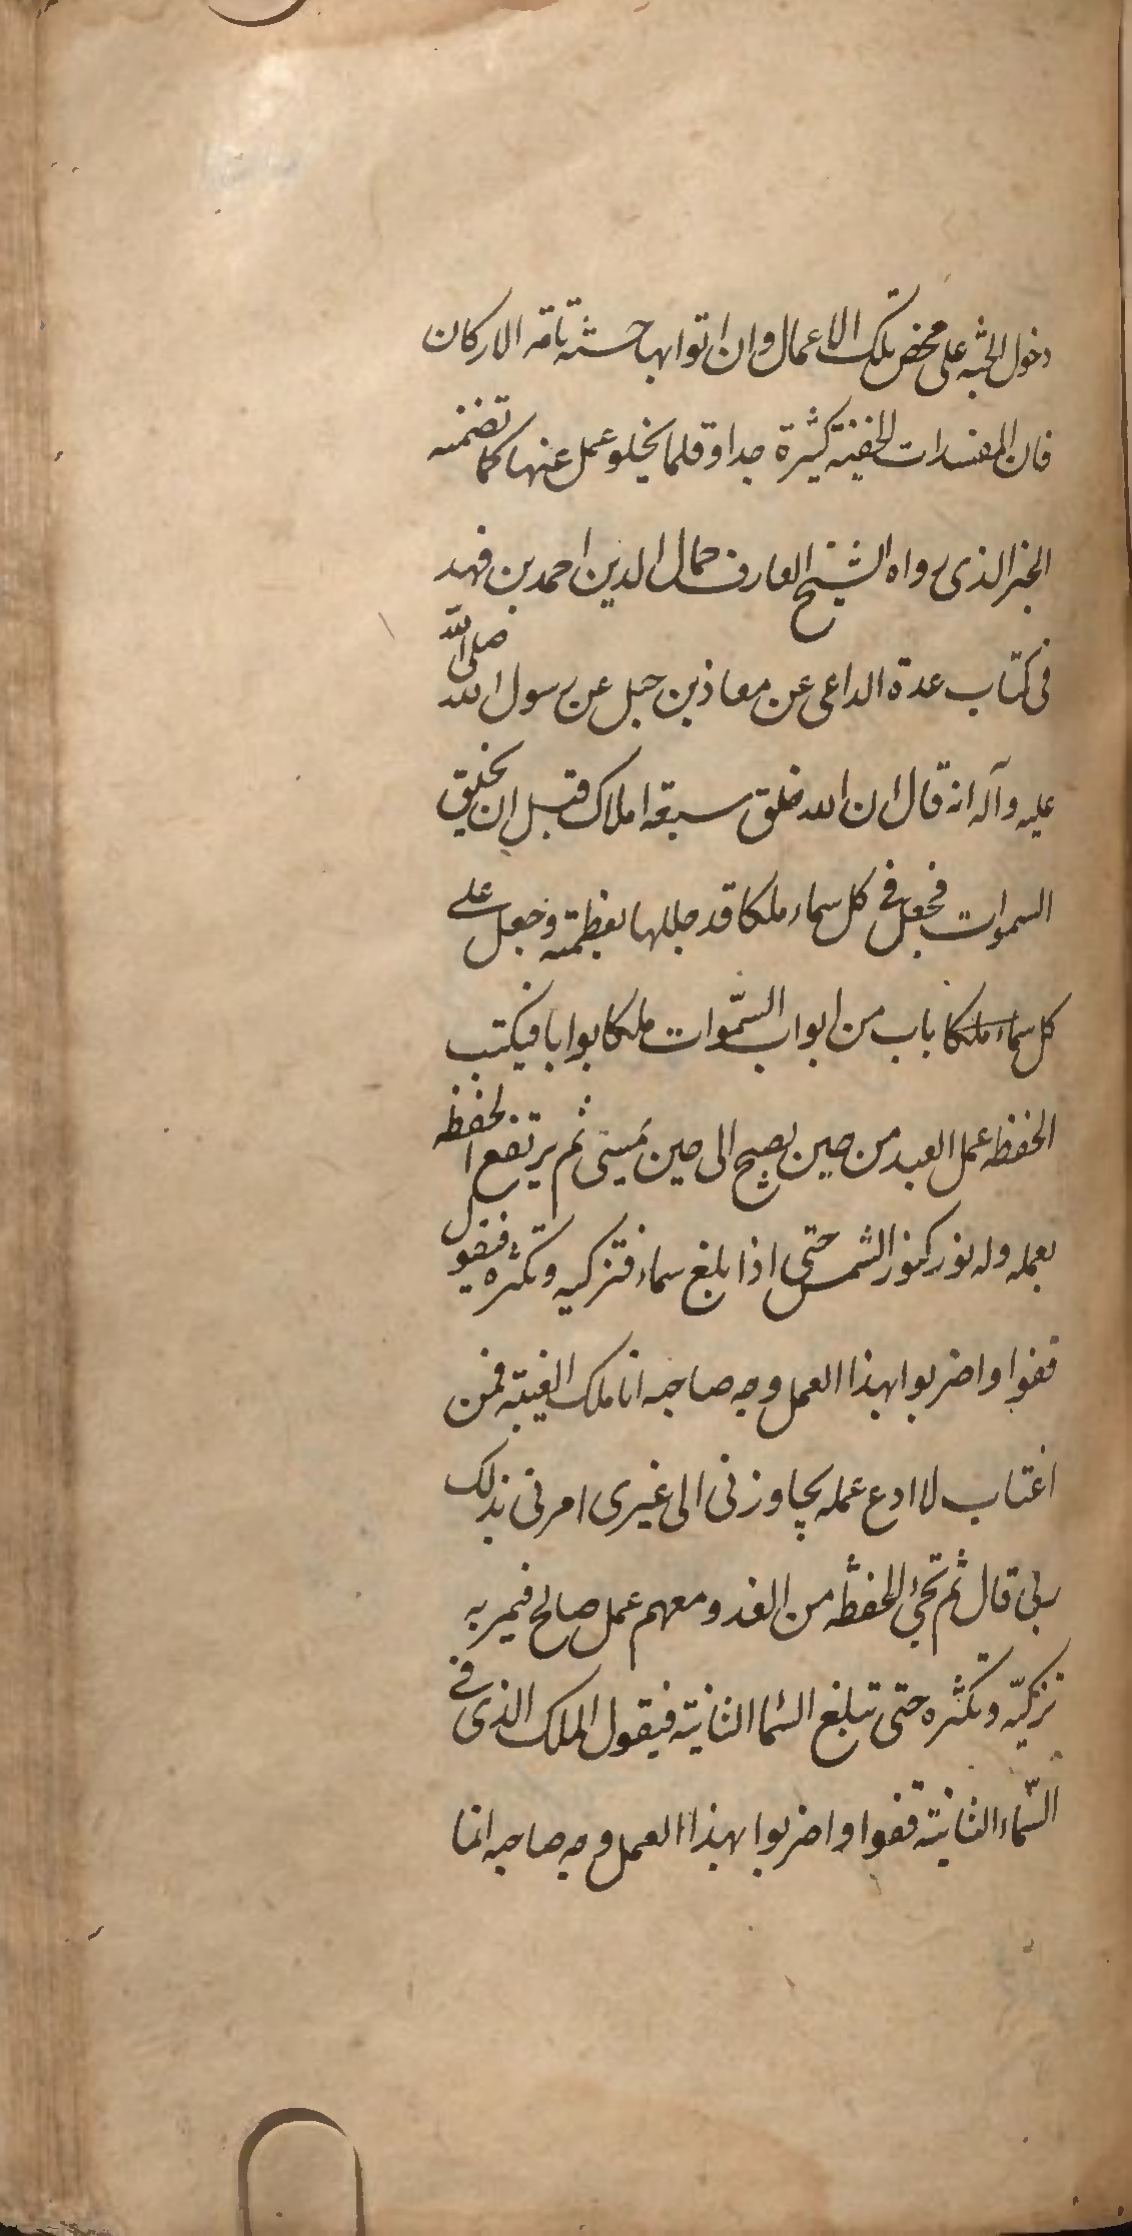 دخول الجنة على محض تلك الاعمال وان اتوا بها حسنة تامة الاركان
فان المفسدات الخفية كثيرة جدا وقلما يخلو عمل عنها كما تضمنه
الخبر الذي رواه الشيخ العارف جمال الدين احمد بن فهد
في كتاب عدة الداعي عن معاذ بن جبل عن رسول الله صلى الله
عليه وآله انه قال ان الله خلق سبعة املاك قبل ان يخلق
السموات فجعل في كل سماء ملكا قد جللها بعظمته وجعل على
كل سماء ملكا باب من ابواب السموات ملكا بوابا فيكتب
الحفظة عمل العبد من حين يصبح الى حين يمسي ثم يرتفع الحفظة
بعمله وله نور كنور الشمس حتى اذا بلغ سماء فتزكيه وتكثره فيقول
قفوا واضربوا بهذا العمل وجه صاحبه انا ملك الغيبة فمن
اغتاب لا ادع عمله يجاوزني الى غيري امرني بذلك
ربي قال ثم تجيء الحفظة من الغد ومعهم عمل صالح فيمر به
تزكيه وتكثره حتى تبلغ السما الثانية فيقول الملك الذي في
السماء الثانية قفوا واضربوا بهذا العمل وجه صاحبه انما